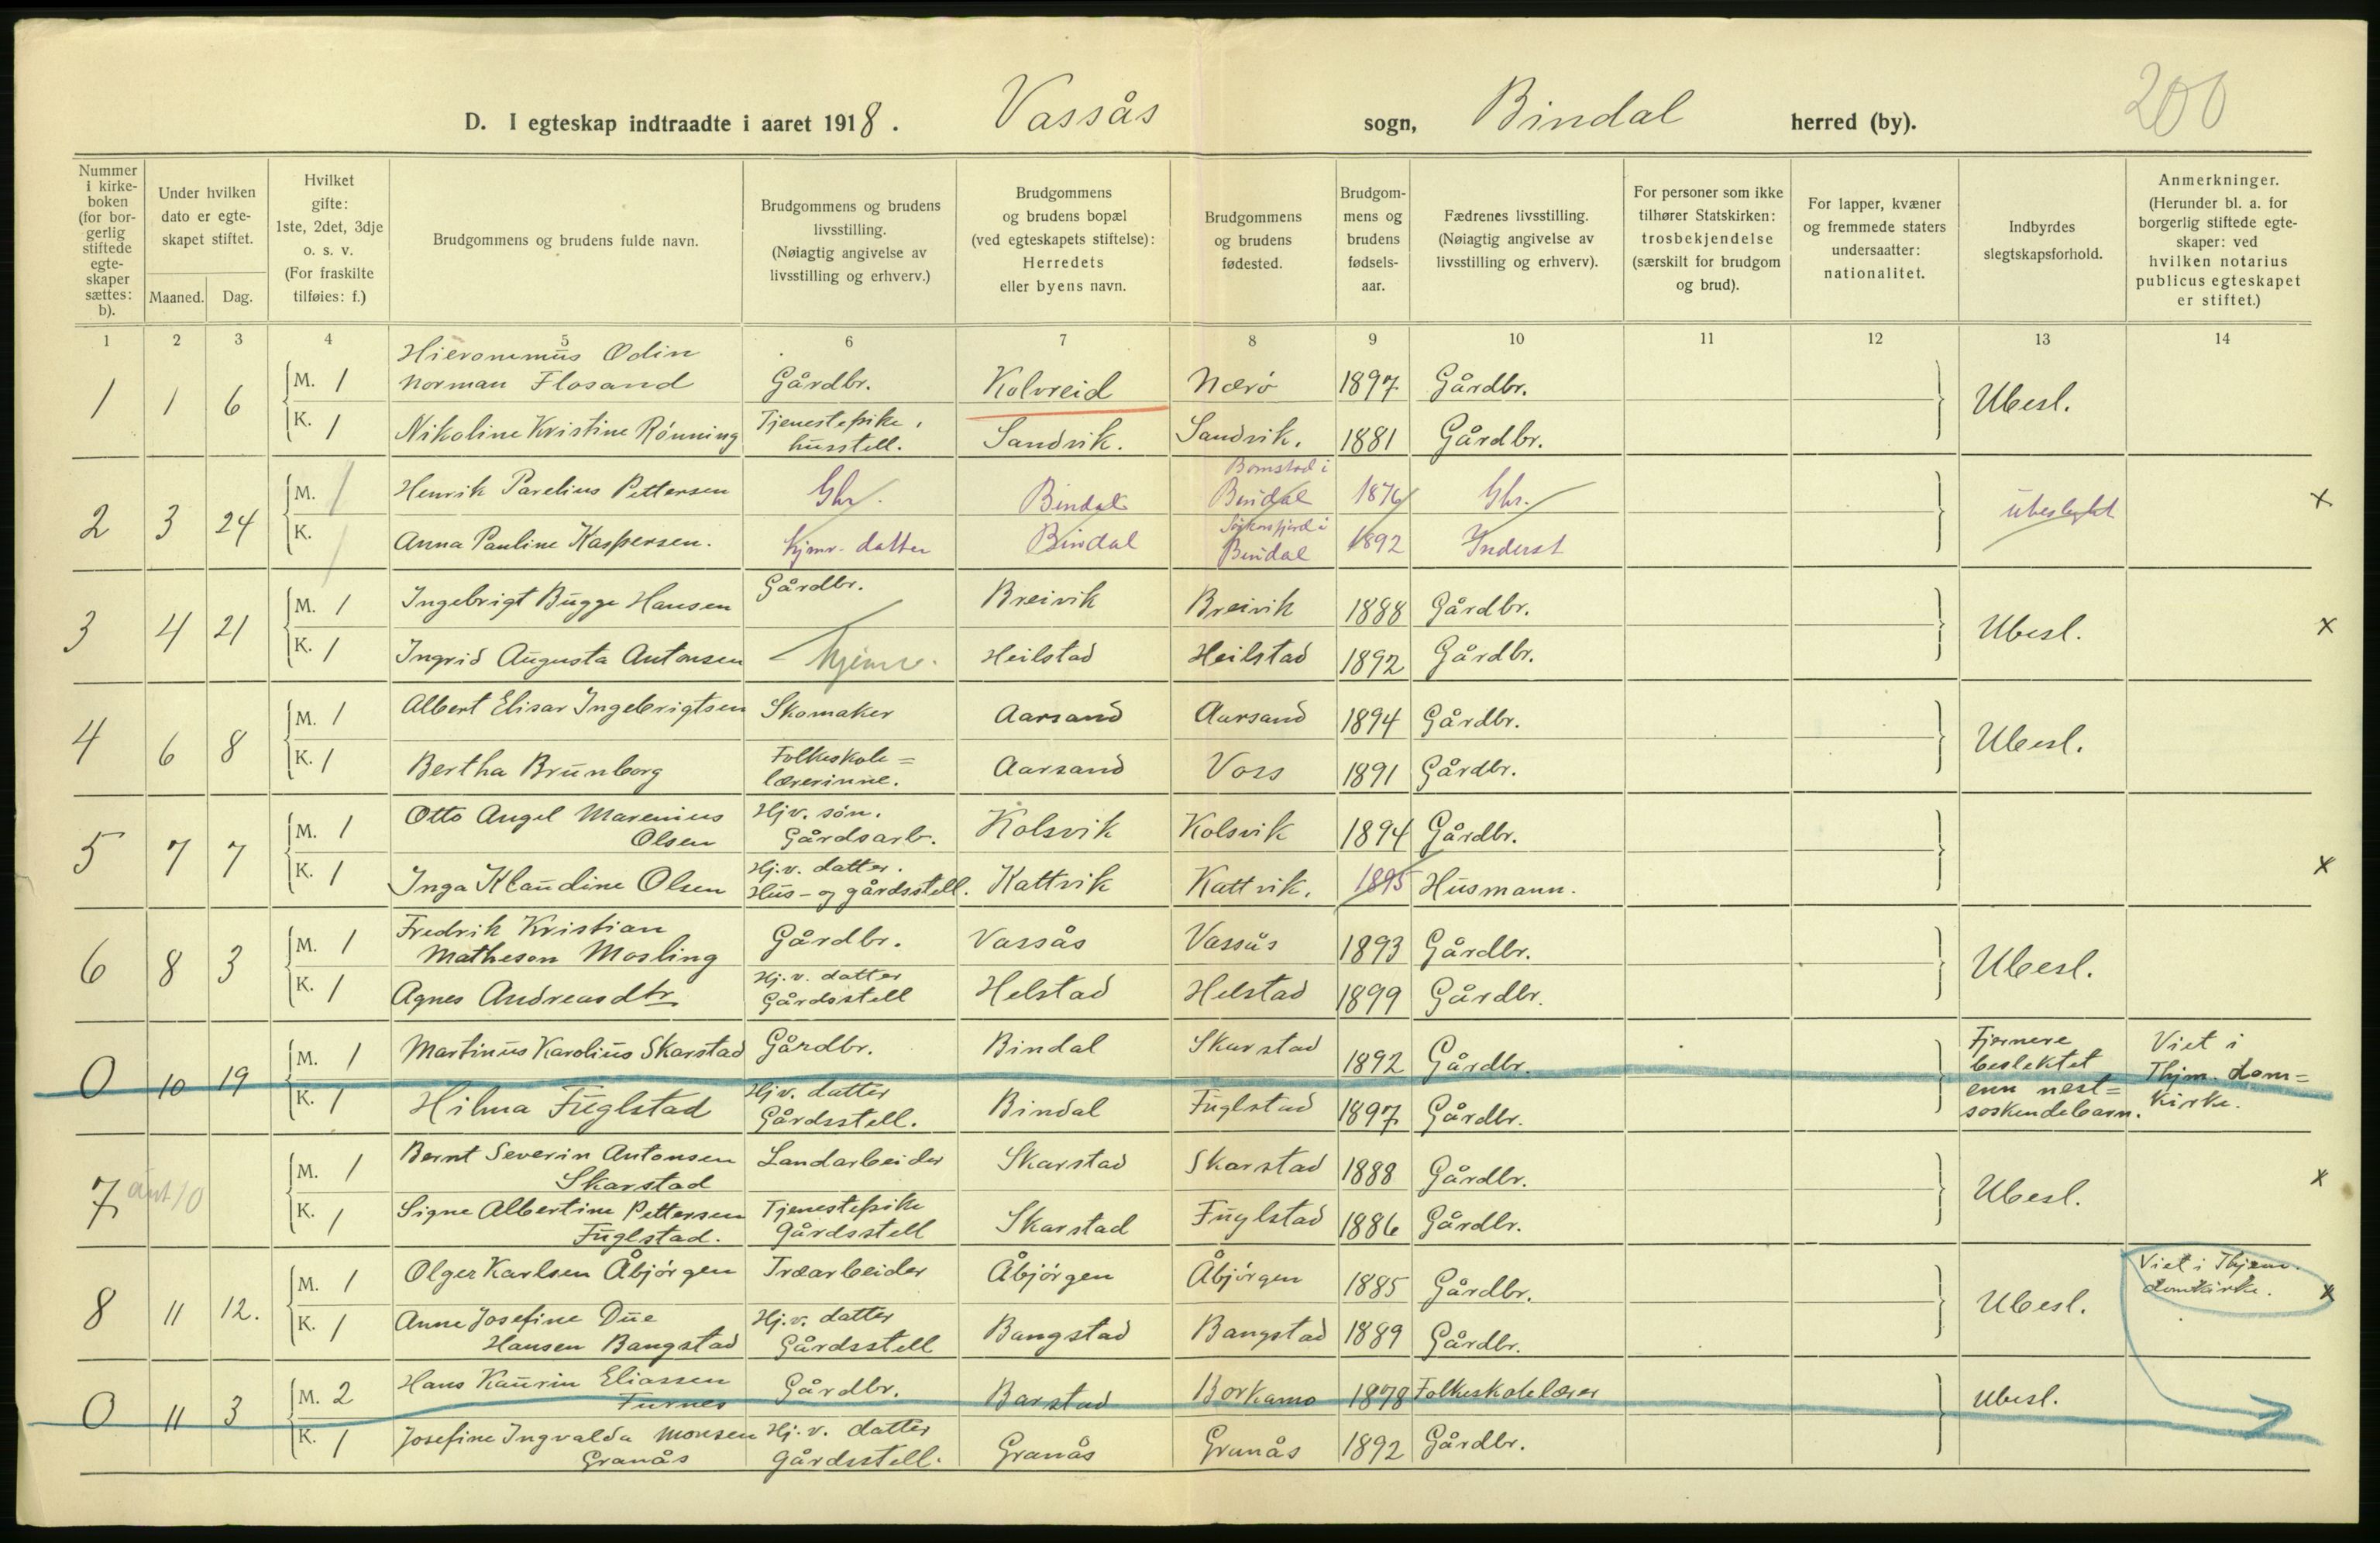 200
D. I egteskap indtraadte i aaret 1918. Vassås sogn, Bindal herred (by).
Nummer i kirkeboken (for borgerlig stiftede egteskaper sættes: b).
Under hvilken dato er egteskapet stiftet.
Maaned. Dag.
Hvilket gifte: 1ste, 2det, 3dje o. s. v. (For fraskilte tilføies: f.)
Brudgommens og brudens fulde navn.
Brudgommens og brudens livsstilling. (Nøiagtig angivelse av livsstilling og erhverv.)
Brudgommens og brudens bopæl (ved egteskapets stiftelse): Herredets eller byens navn.
Brudgommens og brudens fødested.
Brudgommens og brudens fødselsaar.
Fædrenes livsstilling. (Nøiagtig angivelse av livsstilling og erhverv).
For personer som ikke tilhører Statskirken: trosbekjendelse (særskilt for brudgom og brud).
For lapper, kvæner og fremmede staters undersaatter: nationalitet.
Indbyrdes slegtskapsforhold.
Anmerkninger. (Herunder bl. a. for borgerlig stiftede egteskaper: ved hvilken notarius publicus egteskapet er stiftet.)
1 2 3 4 5 6 7 8 9 10 11 12 13 14
1 1 6 M. 1 Hieronimus Odin Norman Flosand Gårdbr. Kolvreid Nærö 1897 Gårdbr. Ubesl.
K. 1 Nikoline Kristine Rönning Tjenestepike, husstell. Sandvik. Sandvik. 1881 Gårdbr.
2 3 24 M. 1 Henrik Parelius Pettersen Gbr. Bindal Bomstad i Bindal 1876 Gbr. ubeslegtet x
K. 1 Anna Pauline Kaspersen. hjmv. datter Bindal Bindal 1892 Inderst
3 4 21 M. 1 Ingebrigt Bugge Hansen Gårdbr. Breivik Breivik 1888 Gårdbr. Ubesl. x
K. 1 Ingrid Augusta Antonsen hjemv. Heilstad Heilstad 1892 Gårdbr.
4 6 8 M. 1 Albert Elisar Ingebrigtsen Skomaker Aarsand Aarsand 1894 Gårdbr. Ubesl.
K. 1 Bertha Brunborg Folkeskole=lærerinne. Aarsand Voss 1891 Gårdbr.
5 7 7 M. 1 Otto Angel Marenius Olsen Hjv. sön. Gårdsarb. Kolsvik Kolsvik 1894 Gårdbr. x
K. 1 Inga Klaudine Olsen Hj.v. datter. Hus- og gårdsstell. Kattvik Kattvik. 1895 Husmann.
6 8 3 M. 1 Fredrik Kristian Matheson Mosling Gårdbr. Vassås Vassås 1893 Gårdbr. Ubesl.
K. 1 Agnes Andreasdtr Hj.v. datter Gårdsstell Helstad Helstad 1899 Gårdbr.
0 10 19 M. 1 Martinus Karolius Skarstad Gårdbr. Bindal Skarstad 1892 Gårdbr. Fjernere beslektet enn nest=soskendebarn. Viet i Thjm. dom=kirke.
K. 1 Hilma Fuglstad Hjv. datter Gårdsstell. Bindal Fuglstad 1897 Gårdbr.
7 ant 10 M. 1 Bernt Severin Antonsen Skarstad Landarbeider Skarstad Skarstad 1888 Gårdbr. Ubesl. x
K. 1 Signe Albertine Pettersen Fuglstad. Tjenestepike gårdsstell Skarstad Fuglstad 1886 Gårdbr.
8 11 12. M. 1 Olger Karlsen Åbjörgen Træarbeider Åbjörgen Åbjörgen 1885 Gårdbr. Ubesl. Viet i Thjem. domkirke. x
K. 1 Anne Josefine Due Hansen Bangstad Hj.v. datter Gårdsstell Bangstad Bangstad 1889 Gårdbr.
0 11 3 M. 2 Hans Kaurin Eliassen Furnes Gårdbr. Barstad Borkamo 1878 Folkeskolelærer Ubesl.
K. 1 Josefine Ingvalda Monsen Granås Hj.v. datter gårdsstell. Granås Granås 1892 Gårdbr.